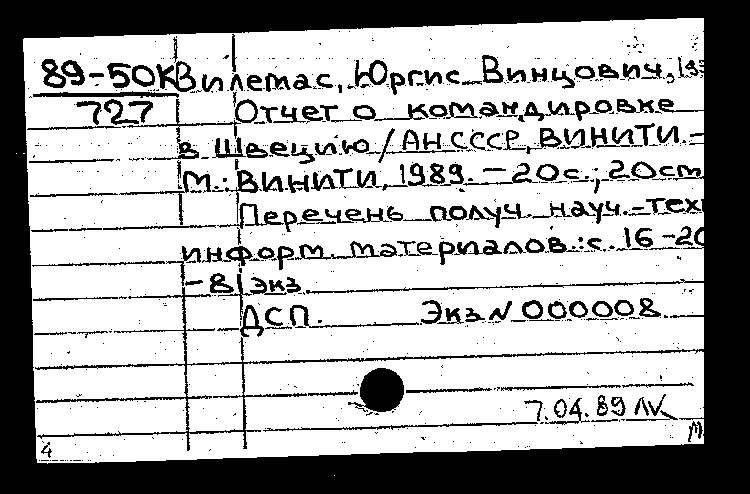 89-50К Вилемас, Юргис Винцович, 193
727 Отчет о командировке
в Швецию / АН СССР, ВИНИТИ. -
М.: ВИНИТИ, 1989. - 20с.; 20см
Перечень получ. науч.-тех
информ. материалов.: с. 16-20
- 8 экз.
ДСП. Экз N 000008
7.04.89 ЛК
4